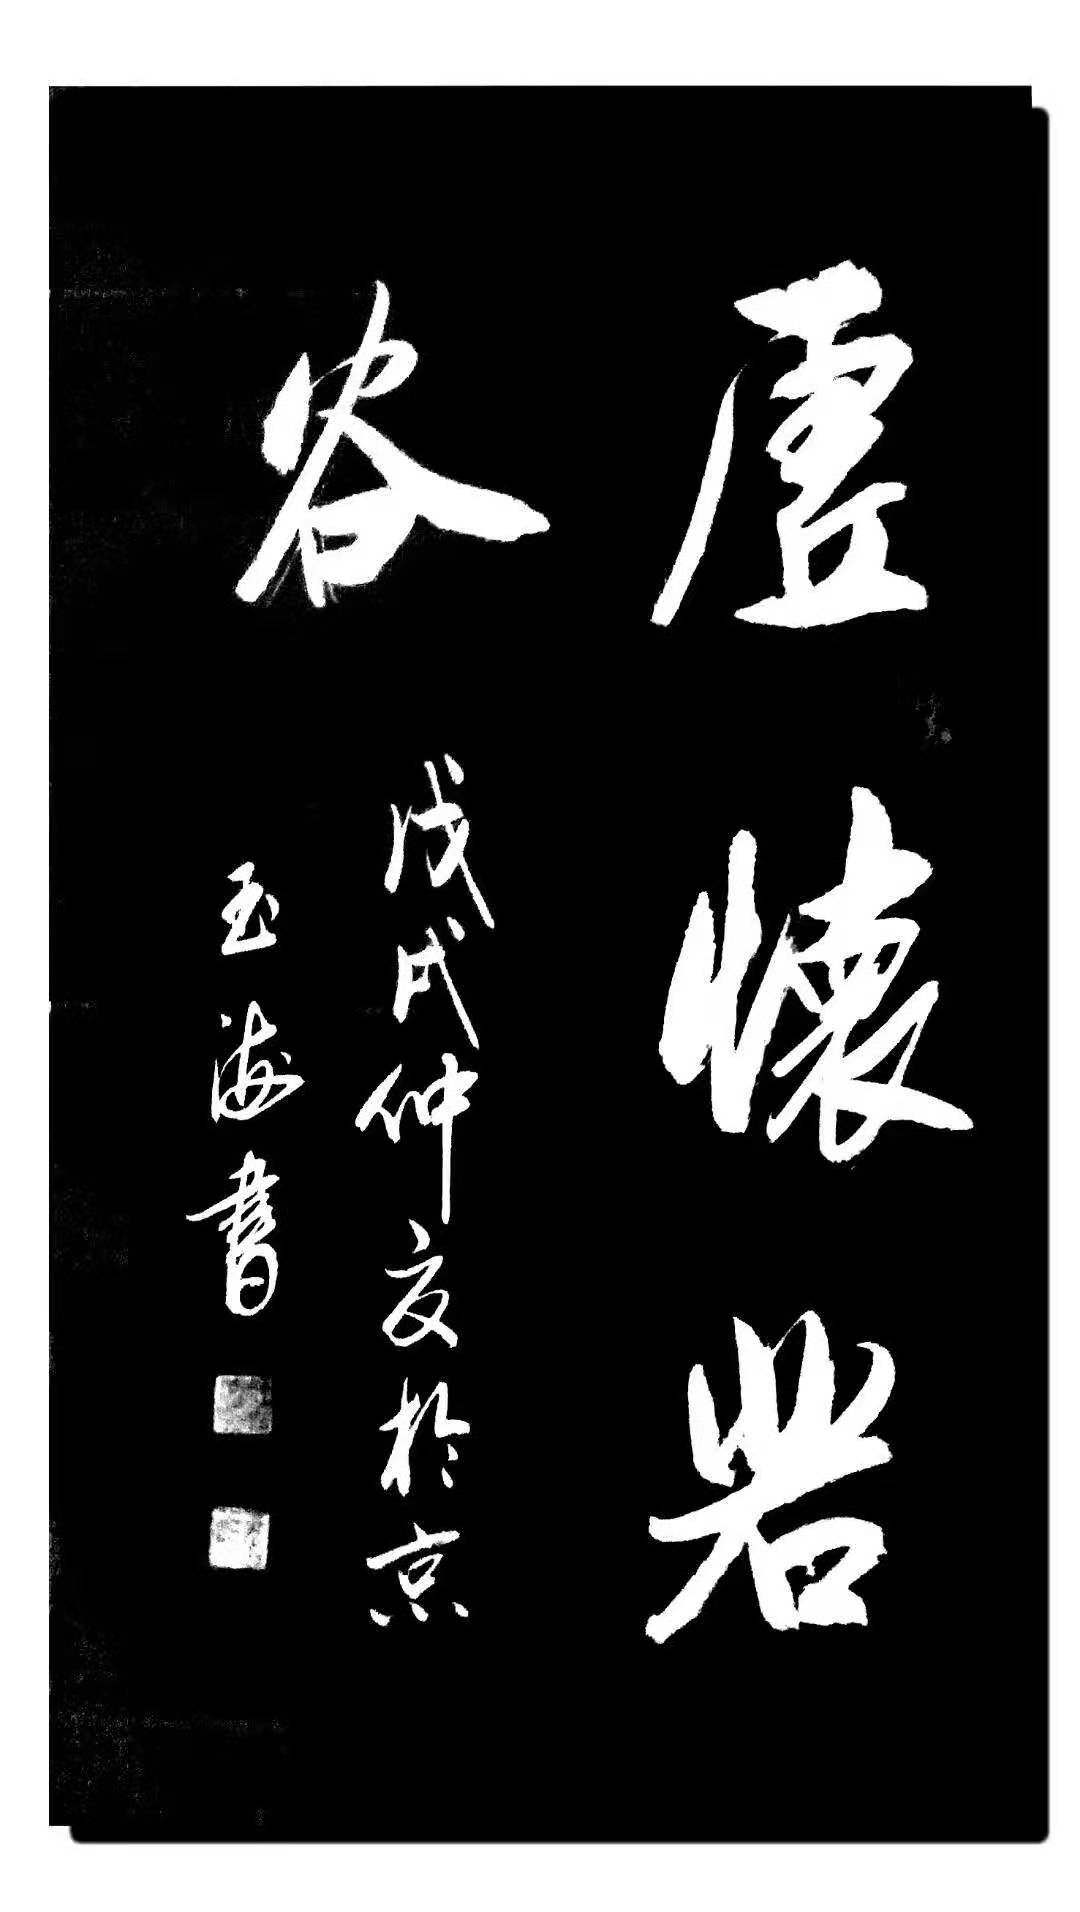 虛懷若
谷
戊戌仲夏於京
玉海書